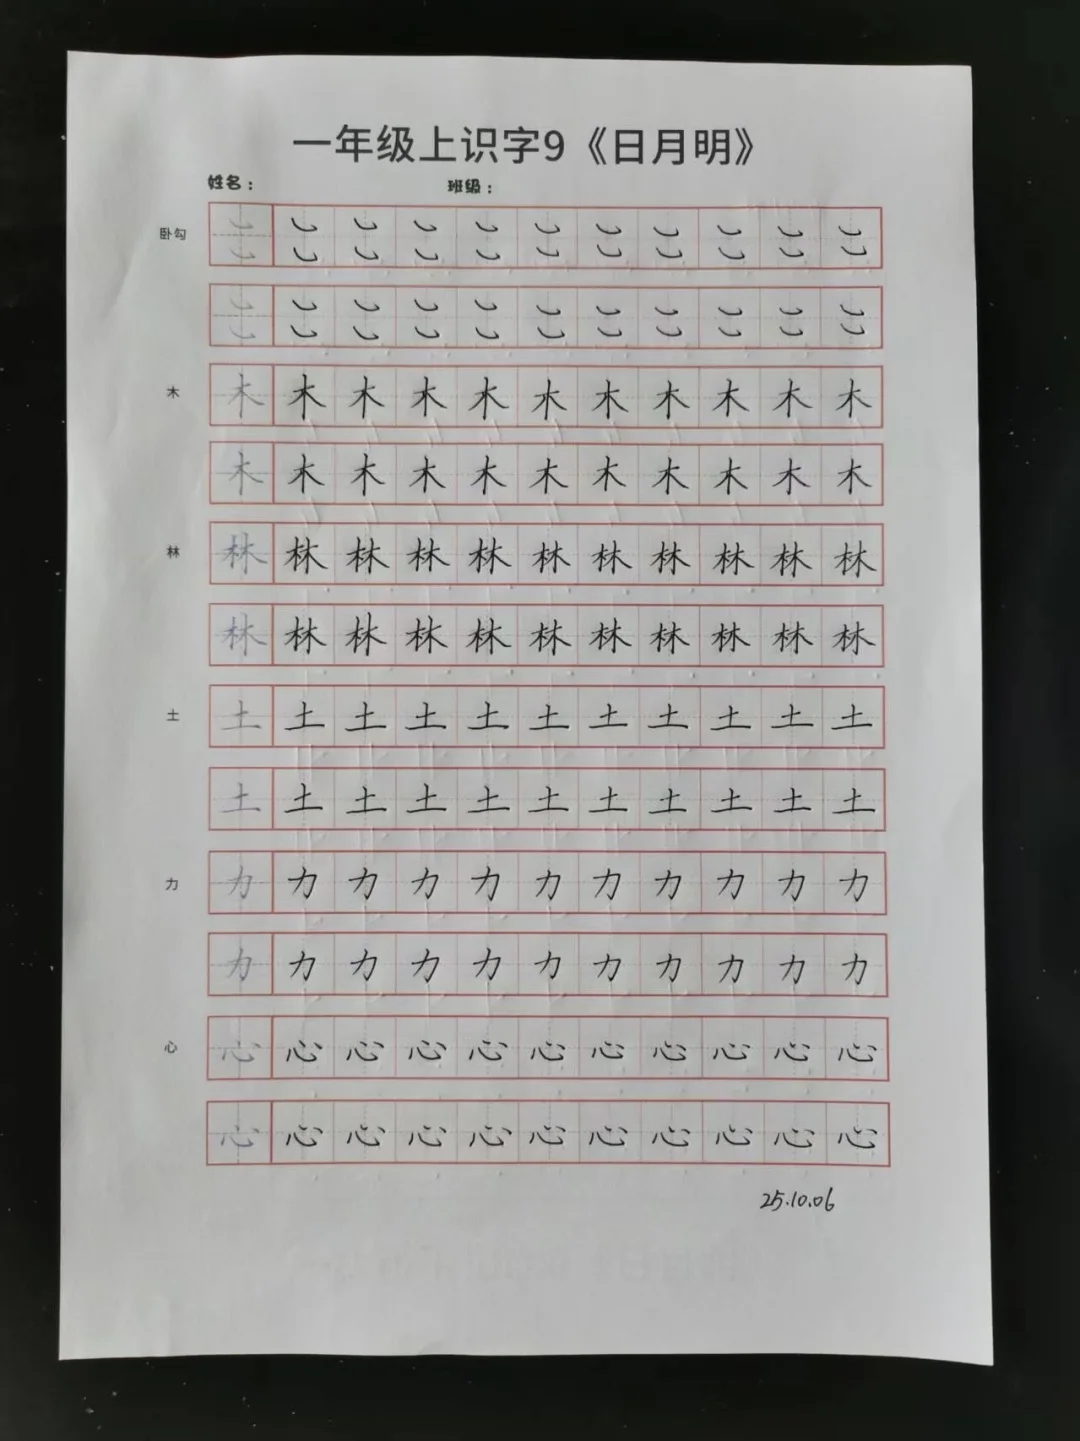 一年级上识字9《日月明》
姓名： 班级：
卧勾
木 木 木 木 木 木 木 木 木 木 木 木
木 木 木 木 木 木 木 木 木 木 木
林 林 林 林 林 林 林 林 林 林 林 林
林 林 林 林 林 林 林 林 林 林 林
土 土 土 土 土 土 土 土 土 土 土 土
土 土 土 土 土 土 土 土 土 土 土
力 力 力 力 力 力 力 力 力 力 力 力
力 力 力 力 力 力 力 力 力 力 力
心 心 心 心 心 心 心 心 心 心 心 心
心 心 心 心 心 心 心 心 心 心 心
25.10.06